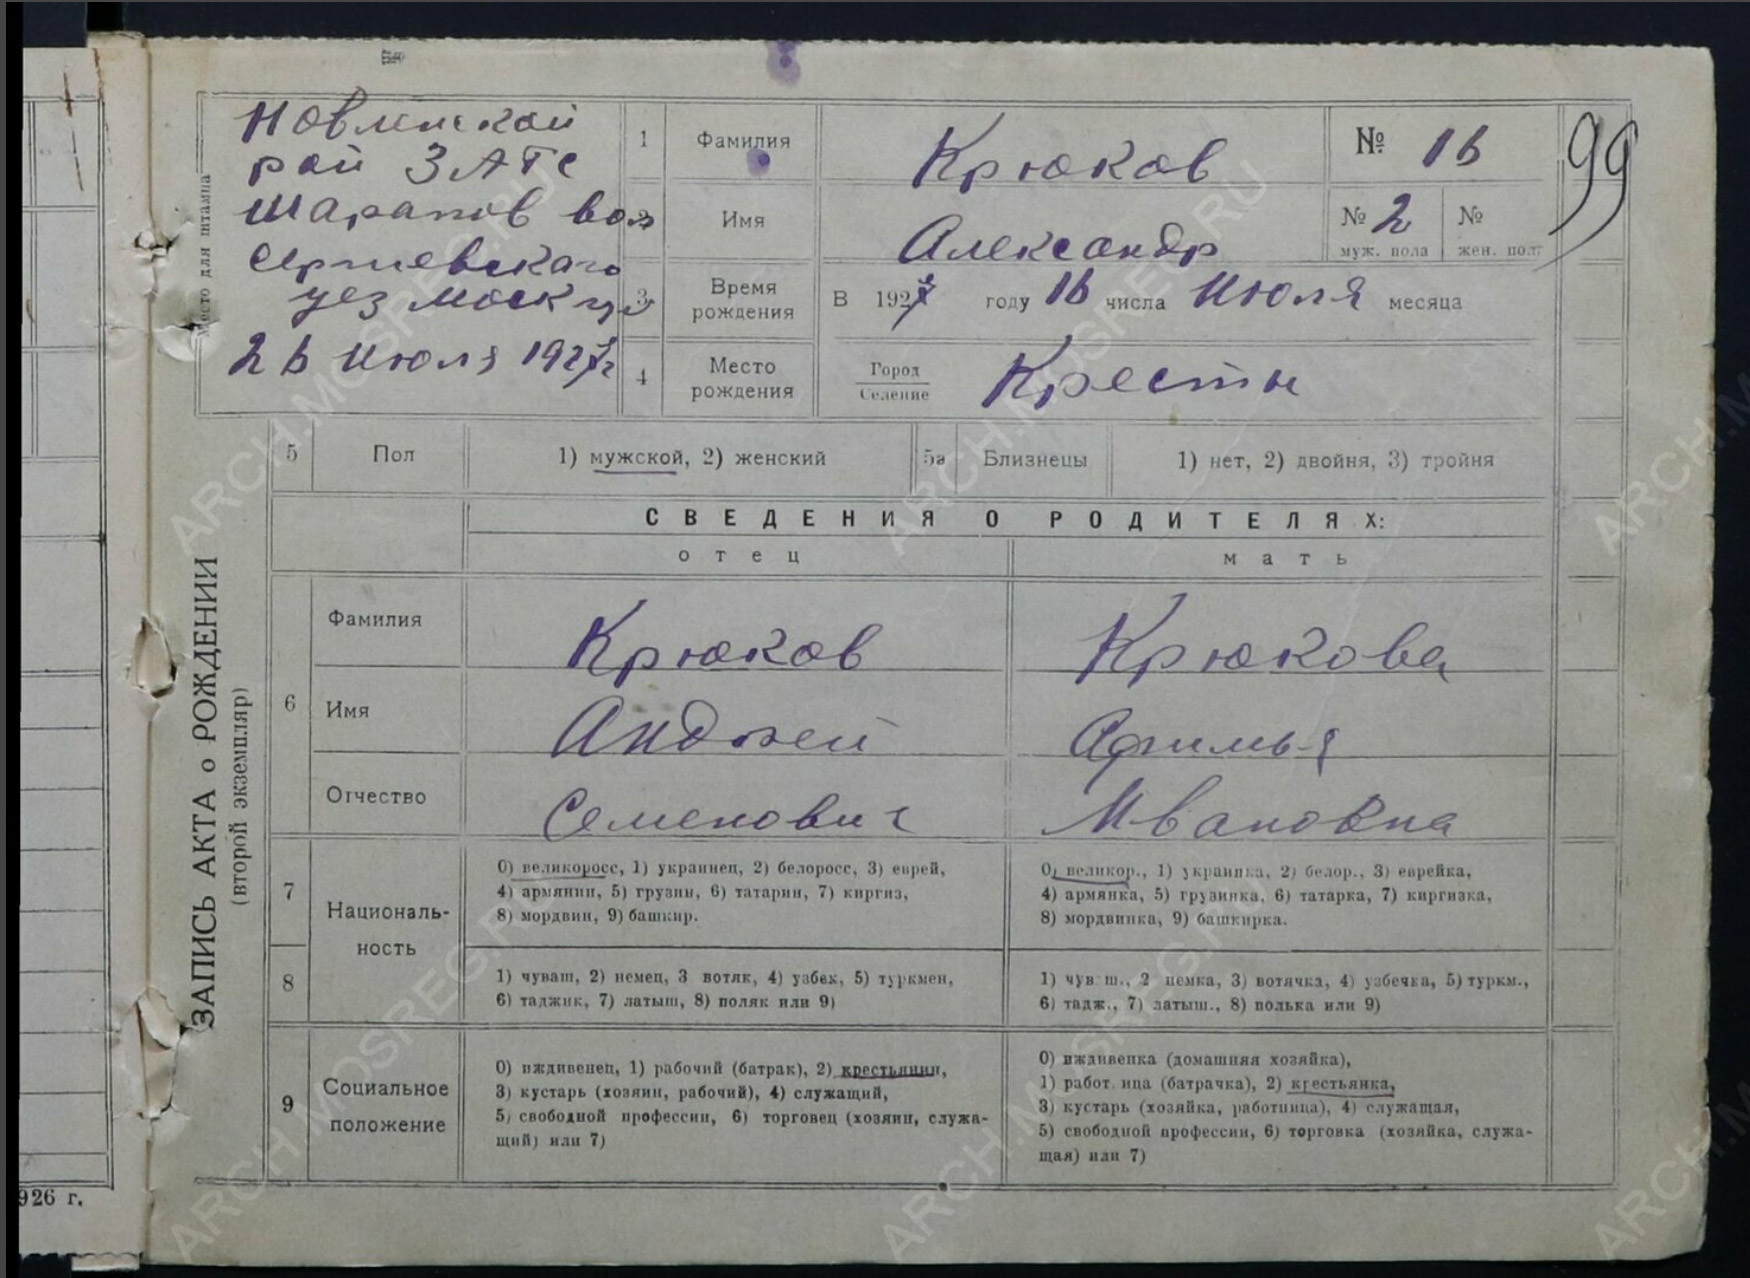 Новленской
рай ЗАГС
Шарапов вол
Сергиевскаго
уез Моск гу
26 Июля 1927 г
Место для штампа
1 Фамилия Крюков № 16
99
2 Имя Александр № 2 муж. пола № жен. пол.
3 Время рождения В 1927 году 16 числа Июля месяца
4 Место рождения Город Селение Кресты
5 Пол 1) мужской, 2) женский 5а Близнецы 1) нет, 2) двойня, 3) тройня
ЗАПИСЬ АКТА о РОЖДЕНИИ
(второй экземпляр)
СВЕДЕНИЯ О РОДИТЕЛЯХ:
отец мать
6 Фамилия Крюков Крюкова
Имя Андрей Афимья
Отчество Семенович Ивановна
7 Националь-
ность
0) великоросс, 1) украинец, 2) белоросс, 3) еврей,
4) армянин, 5) грузин, 6) татарин, 7) киргиз,
8) мордвин, 9) башкир.
0) великор., 1) украинка, 2) белор., 3) еврейка,
4) армянка, 5) грузинка, 6) татарка, 7) киргизка,
8) мордвинка, 9) башкирка.
8
1) чуваш, 2) немец, 3 вотяк, 4) узбек, 5) туркмен,
6) таджик, 7) латыш, 8) поляк или 9)
1) чув ш., 2 немка, 3) вотячка, 4) узбечка, 5) туркм.,
6) тадж., 7) латыш., 8) полька или 9)
9 Социальное
положение
0) иждивенец, 1) рабочий (батрак), 2) крестьянин,
3) кустарь (хозяин, рабочий), 4) служащий,
5) свободной профессии, 6) торговец (хозяин, служа-
щий) или 7)
0) иждивенка (домашняя хозяйка),
1) работ ица (батрачка), 2) крестьянка,
3) кустарь (хозяйка, работница), 4) служащая,
5) свободной профессии, 6) торговка (хозяйка, служа-
щая) или 7)
926 г.
ARCH.MOSREG.RU